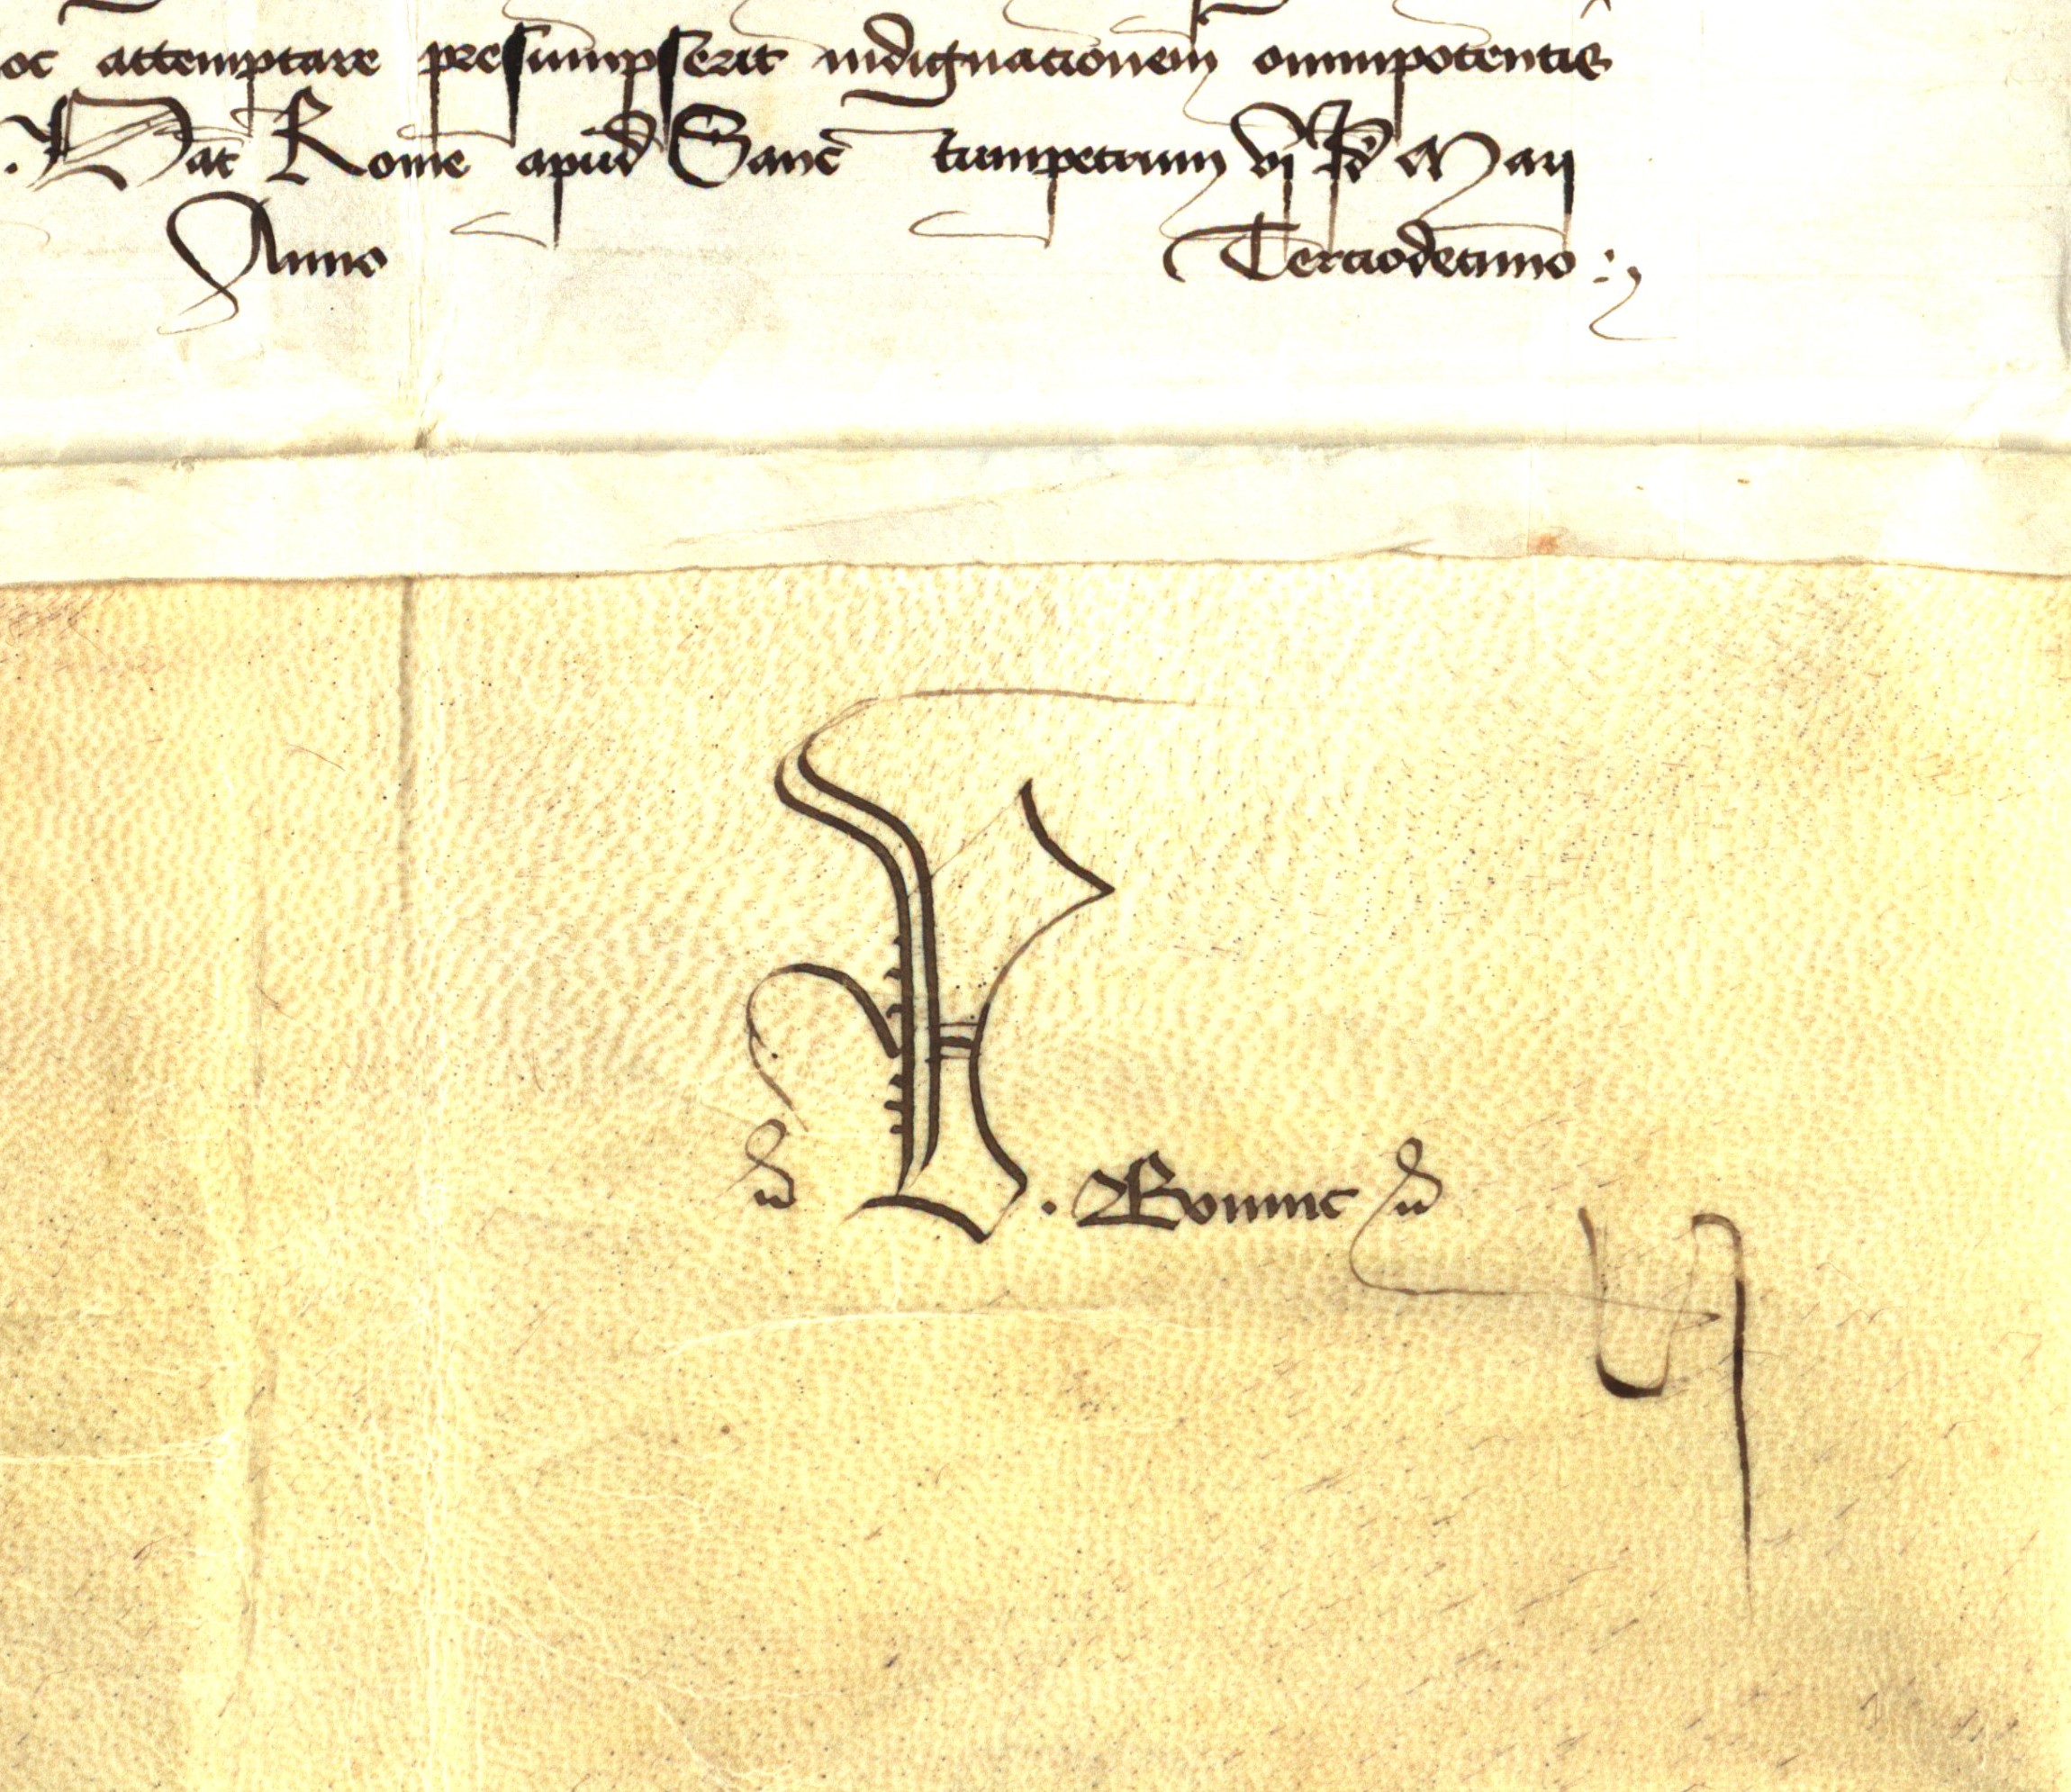 oc attemptare presumpserit indignacionem omnipotentis
. Dat Rome apud Sanc tumpetrum vj kl Maij
Anno Terciodecimo :
. Boninc